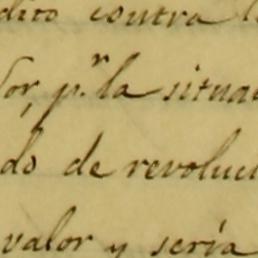 dito contra l
or, p.r la situa
do de revoluc
valor y sería